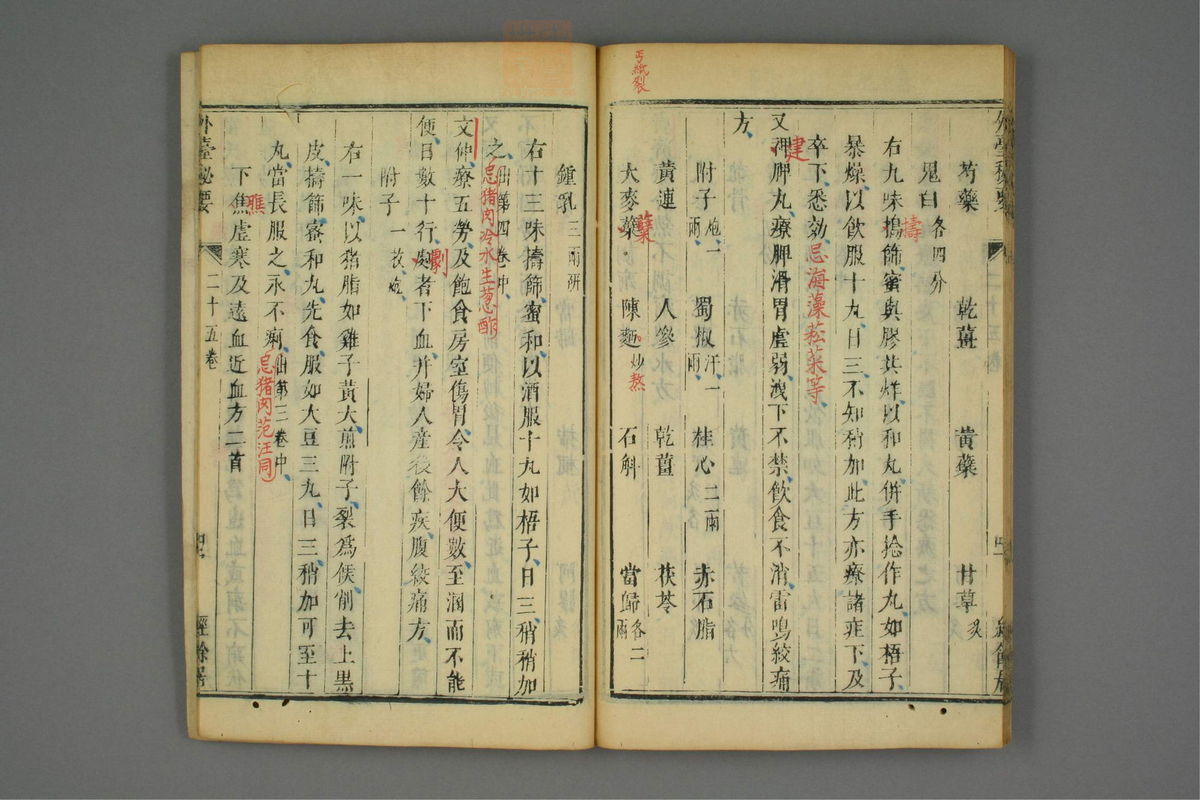 丐紙裂
芍藥 乾薑 黄蘗 甘草炙
鬼臼各四分
右九味搗篩蜜與膠共烊以和丸併手捻作丸如梧子
擣
暴燥以飲服十丸日三不知稍加此方亦療諸疰下及
卒下悉効忌海藻菘菜等
又裨脾丸療脾滑胃虚弱洩下不禁飲食不消雷鳴絞痛
建
方
附子炮一兩 蜀椒汗一兩 桂心二兩 赤石脂
黄連 人參 乾薑 茯苓
大麥蘗 陳麵炒 石斛 當歸各二兩
糵
熬
鍾乳三兩研
右十三味擣篩蜜和以酒服十丸如梧子日三稍加
之出第四卷中
忌猪肉冷水生葱酢
文仲療五勞及飽食房室傷胃令人大便數至溷而不能
便日數十行劇者下血并婦人産後餘疾腹絞痛方
劇
附子一枚炮
右一味以猪脂如雞子黄大煎附子裂爲候削去上黒
皮擣篩蜜和丸先食服如大豆三丸日三稍加可至十
丸當長服之永不痢出第三卷中
忌猪肉范汪同
下焦虚寒及遠血近血方二首
膲
外臺秘要 二十五卷 經餘居